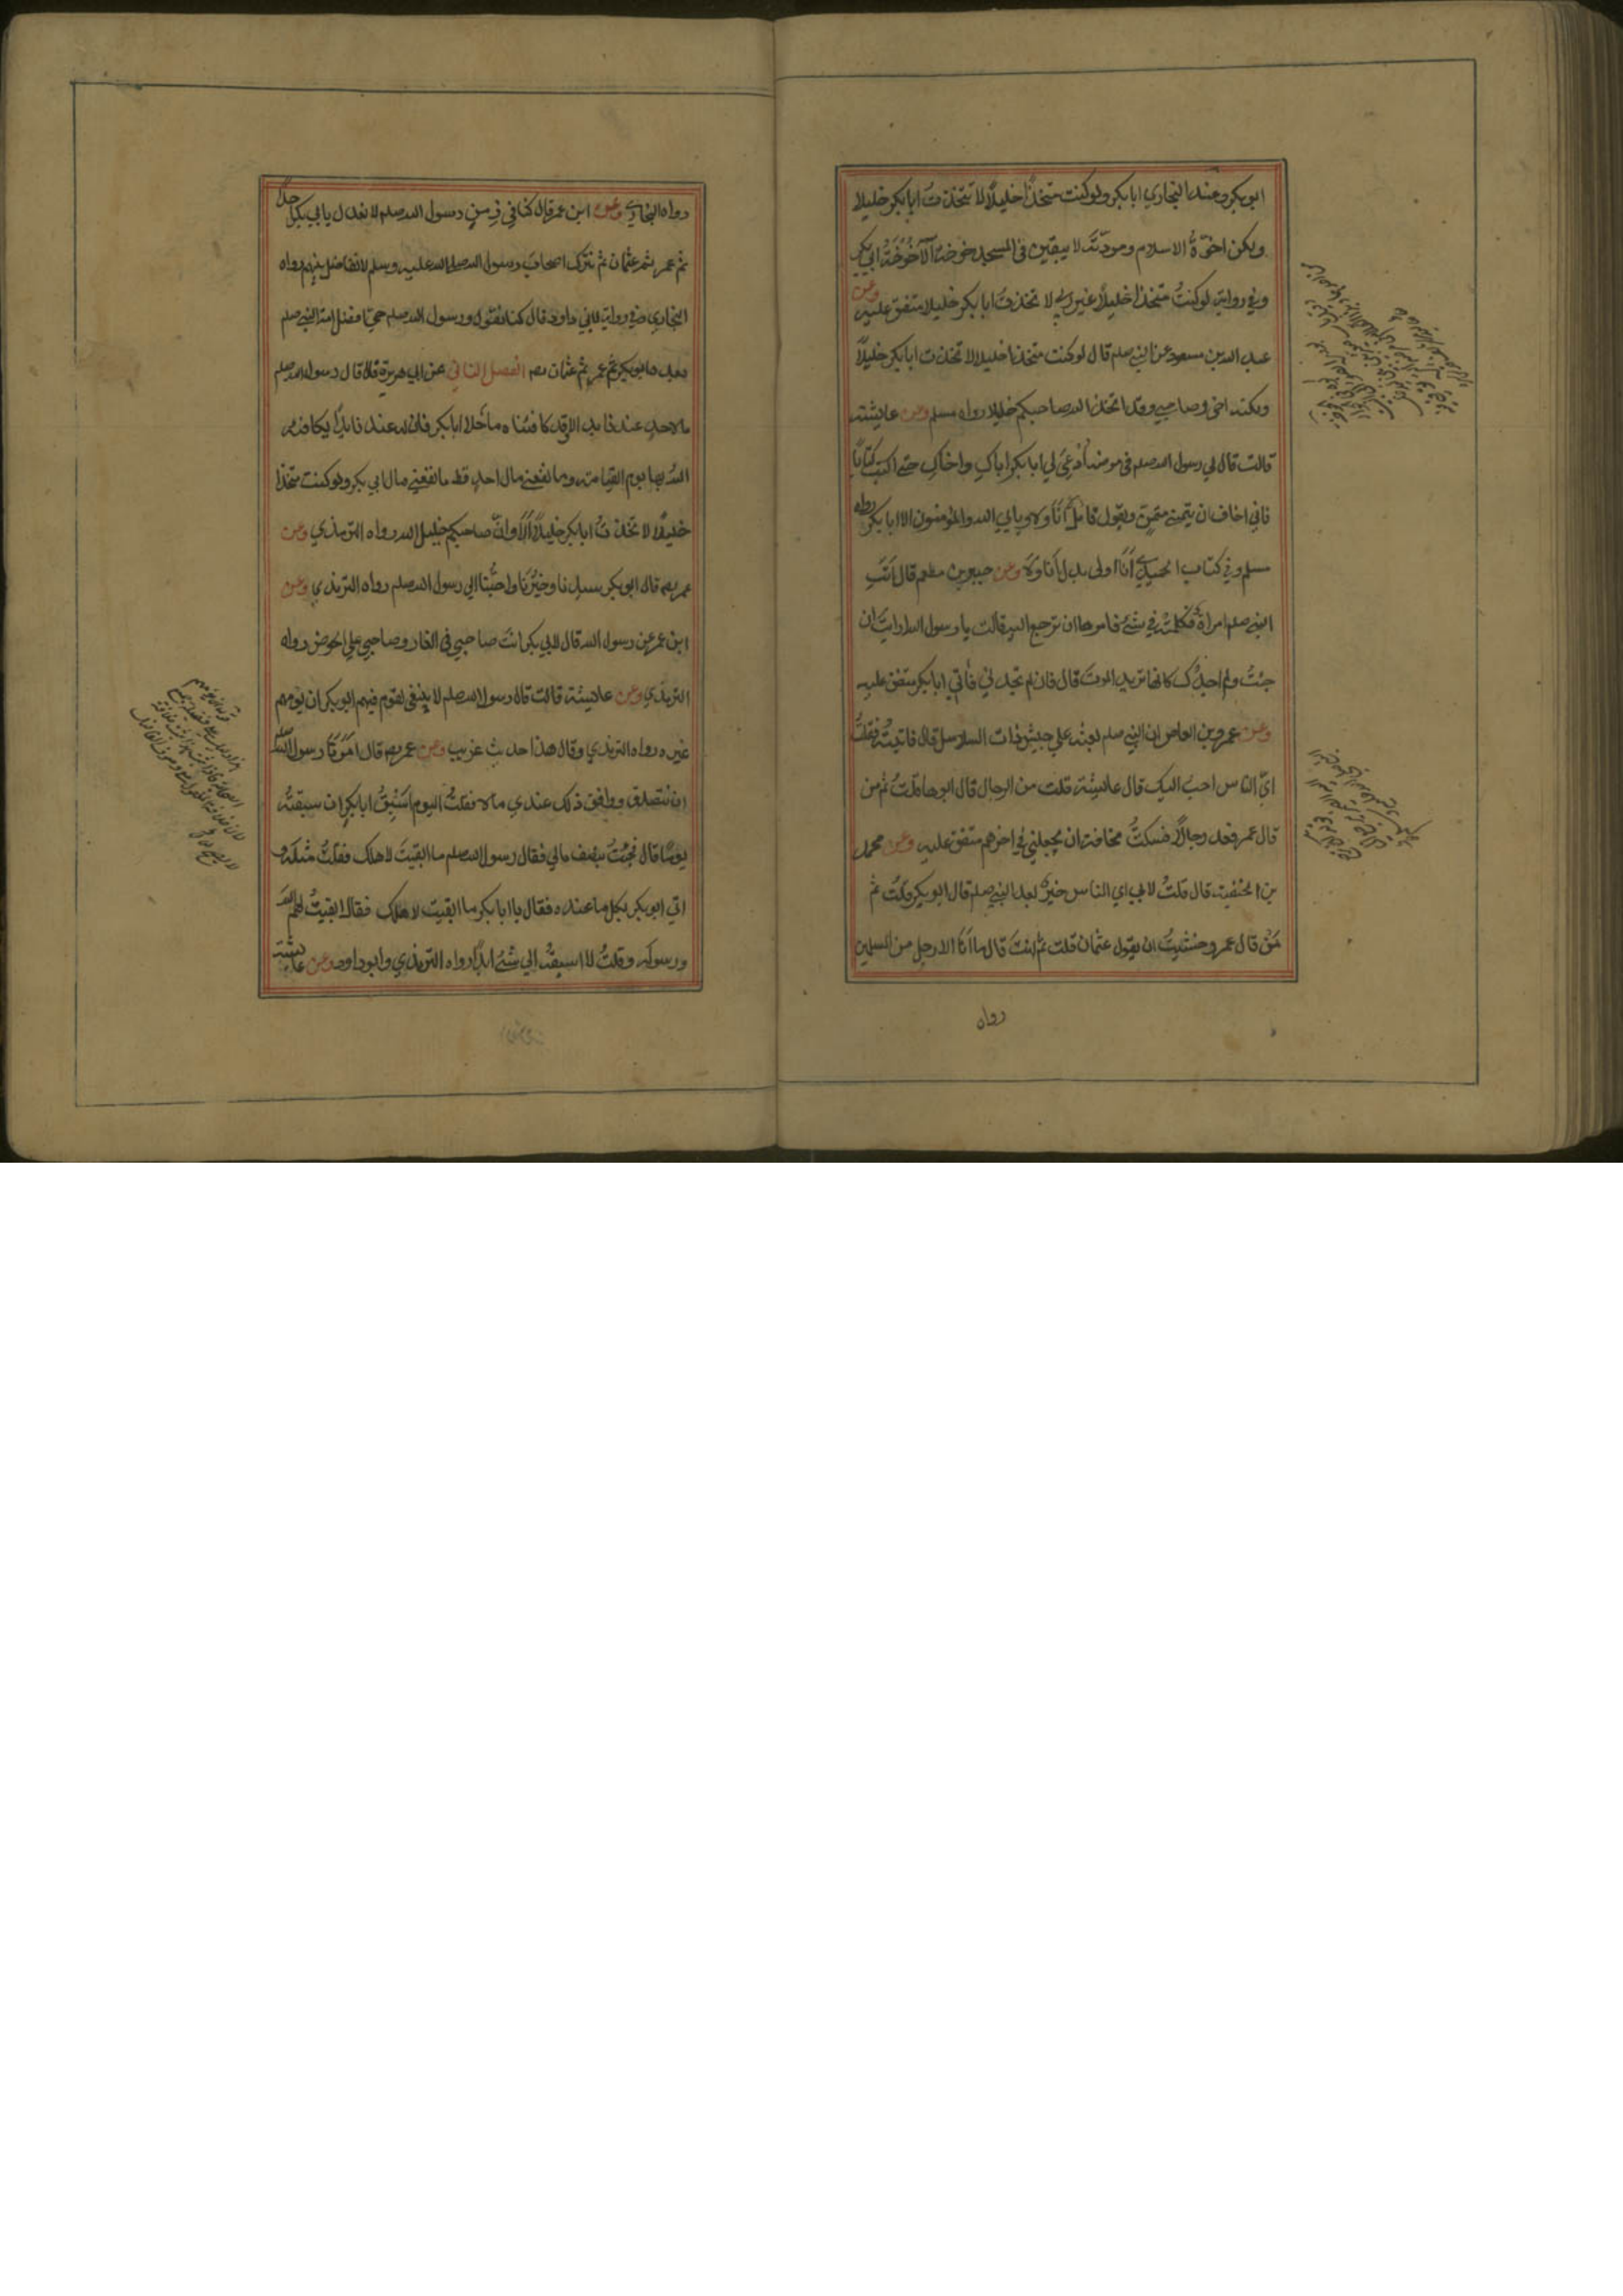 ابوبكر وعند البخاري ابا بكر ولو كنت متخذا خليلاً لا تتخذتُ ابا بكر خليلا
ولكن اخوّةُ الاسلام ومودّتَه لا يبقين في المسجد خوخة اِلّا خَوْخَةُ ابي بكر
وفي رواية لو كنتُ متخذا خليلاً غير ربي لا تخذتُ ابا بكر خليلا متفق عليه وعن
عبد الله بن مسعود عن النبي صلعم قال لو كنت متخذا خليلا لا تخذت ابا بكر خليلاً
ولكنه اخي وصاحبي وقد اتخذ الله صاحبكم خليلا رواه مسلم وعن عايشته
قالت قال لي رسول الله صلعم في مرضه اُدْعِيْ لي ابا بكر اباكِ واخاكِ حتے اكتب كتاباً
فاني اخاف ان يتمنے متمنٍّ ويقول قايل اَنَا ولا ويابي الله والمؤمنون الا ابا بكر رواه
مسلم وفي كتاب الحميدي اَنَا اولى بدل اَنا ولا وعن جبير بن مطعم قال اَتَتِ
النبي صلعم امراة فكلمته في شئ فامرها ان ترجع اليه قالت يا رسول الله ارايت ان
جئتُ ولم اجدك كانها تريد الموتَ قال فان لم تجديني فأتي ابا بكر متفق عليه
وعن عمرو بن العاص ان النبي صلعم بعثه علي جيش ذات السلاسل قال فاتيته فقلتُ
ايّ الناس احبُّ اليك قال عائيشة قلت من الرجال قال ابوها قلتُ ثم من
قال عمر فعد رجالاً فسكتُّ مخافة ان يجعلني في اخرهم متفق عليه وعن محمد
بن الحنفية قال قلتُ لابي اي الناس خيرٌ بعد النبي صلعم قال ابو بكر قلتُ ثم
مَنْ قال عمر وخشيتُ ان يقول عثمان قلت ثم انتَ قال ما اَنَا الا رجل من المسلمين
رواه
رواه البخاري وعن ابن عمر قال كنا في زمن رسول الله صلعم لا نعدل بابي بكر احداً
ثم عمر ثم عثمان ثم نترك اصحابَ رسول الله صلے الله عليه وسلم لا نفاضل بينهم رواه
البخاري وفي رواية لابي داود قال كنا نقول ورسول الله صلعم حيّ افضل امة النبي صلعم
بعده ابوبكر ثم عمر ثم عثمان رض الفصل الثاني عن ابي هريرة قال قال رسول الله صلعم
ما لاحدٍ عندنا يد الا وقد كافيناه ما خلا ابا بكر فان له عندنا يداً يكافئه
الله بها يوم القيامة وما نفعني مال احدٍ قط ما نفعني مال ابي بكر ولو كنت متخذا
خليلا لا تخذتُ ابا بكر خليلاً اَلَا وانّ صاحبكم خليل الله رواه الترمذي وعن
عمر رض قال ابوبكر سيدنا وخيْرُنا واحبُّنا الي رسول الله صلعم رواه الترمذي وعن
ابن عمر عن رسول الله قال لابي بكر انتَ صاحبي في الغار وصاحبي علي الحوض رواه
الترمذي وعن عائيشة قالت قال رسول الله صلعم لا ينبغي لقوم فيهم ابو بكر ان يؤمهم
غيره رواه الترمذي وقال هذا حديث غريب وعن عمر رض قال اَمَرَنا رسول الله
ان نتصدق ووافق ذلك عندي مالا فقلتُ اليوم اَسْبِقُ ابا بكر ان سبقتُه
يومًا قال فجئتُ بنصف مالي فقال رسول الله صلعم ما ابقيتَ لاهلك فقلتُ مثلَه و
اتي ابو بكر بكل ما عنده فقال يا ابا بكر ما ابقيت لاهلك فقال ابقيتُ لهم الله
ورسوله وقلتُ لا اسبقُه الي شئ ابداً رواه الترمذي وابو داود وعن عايشة